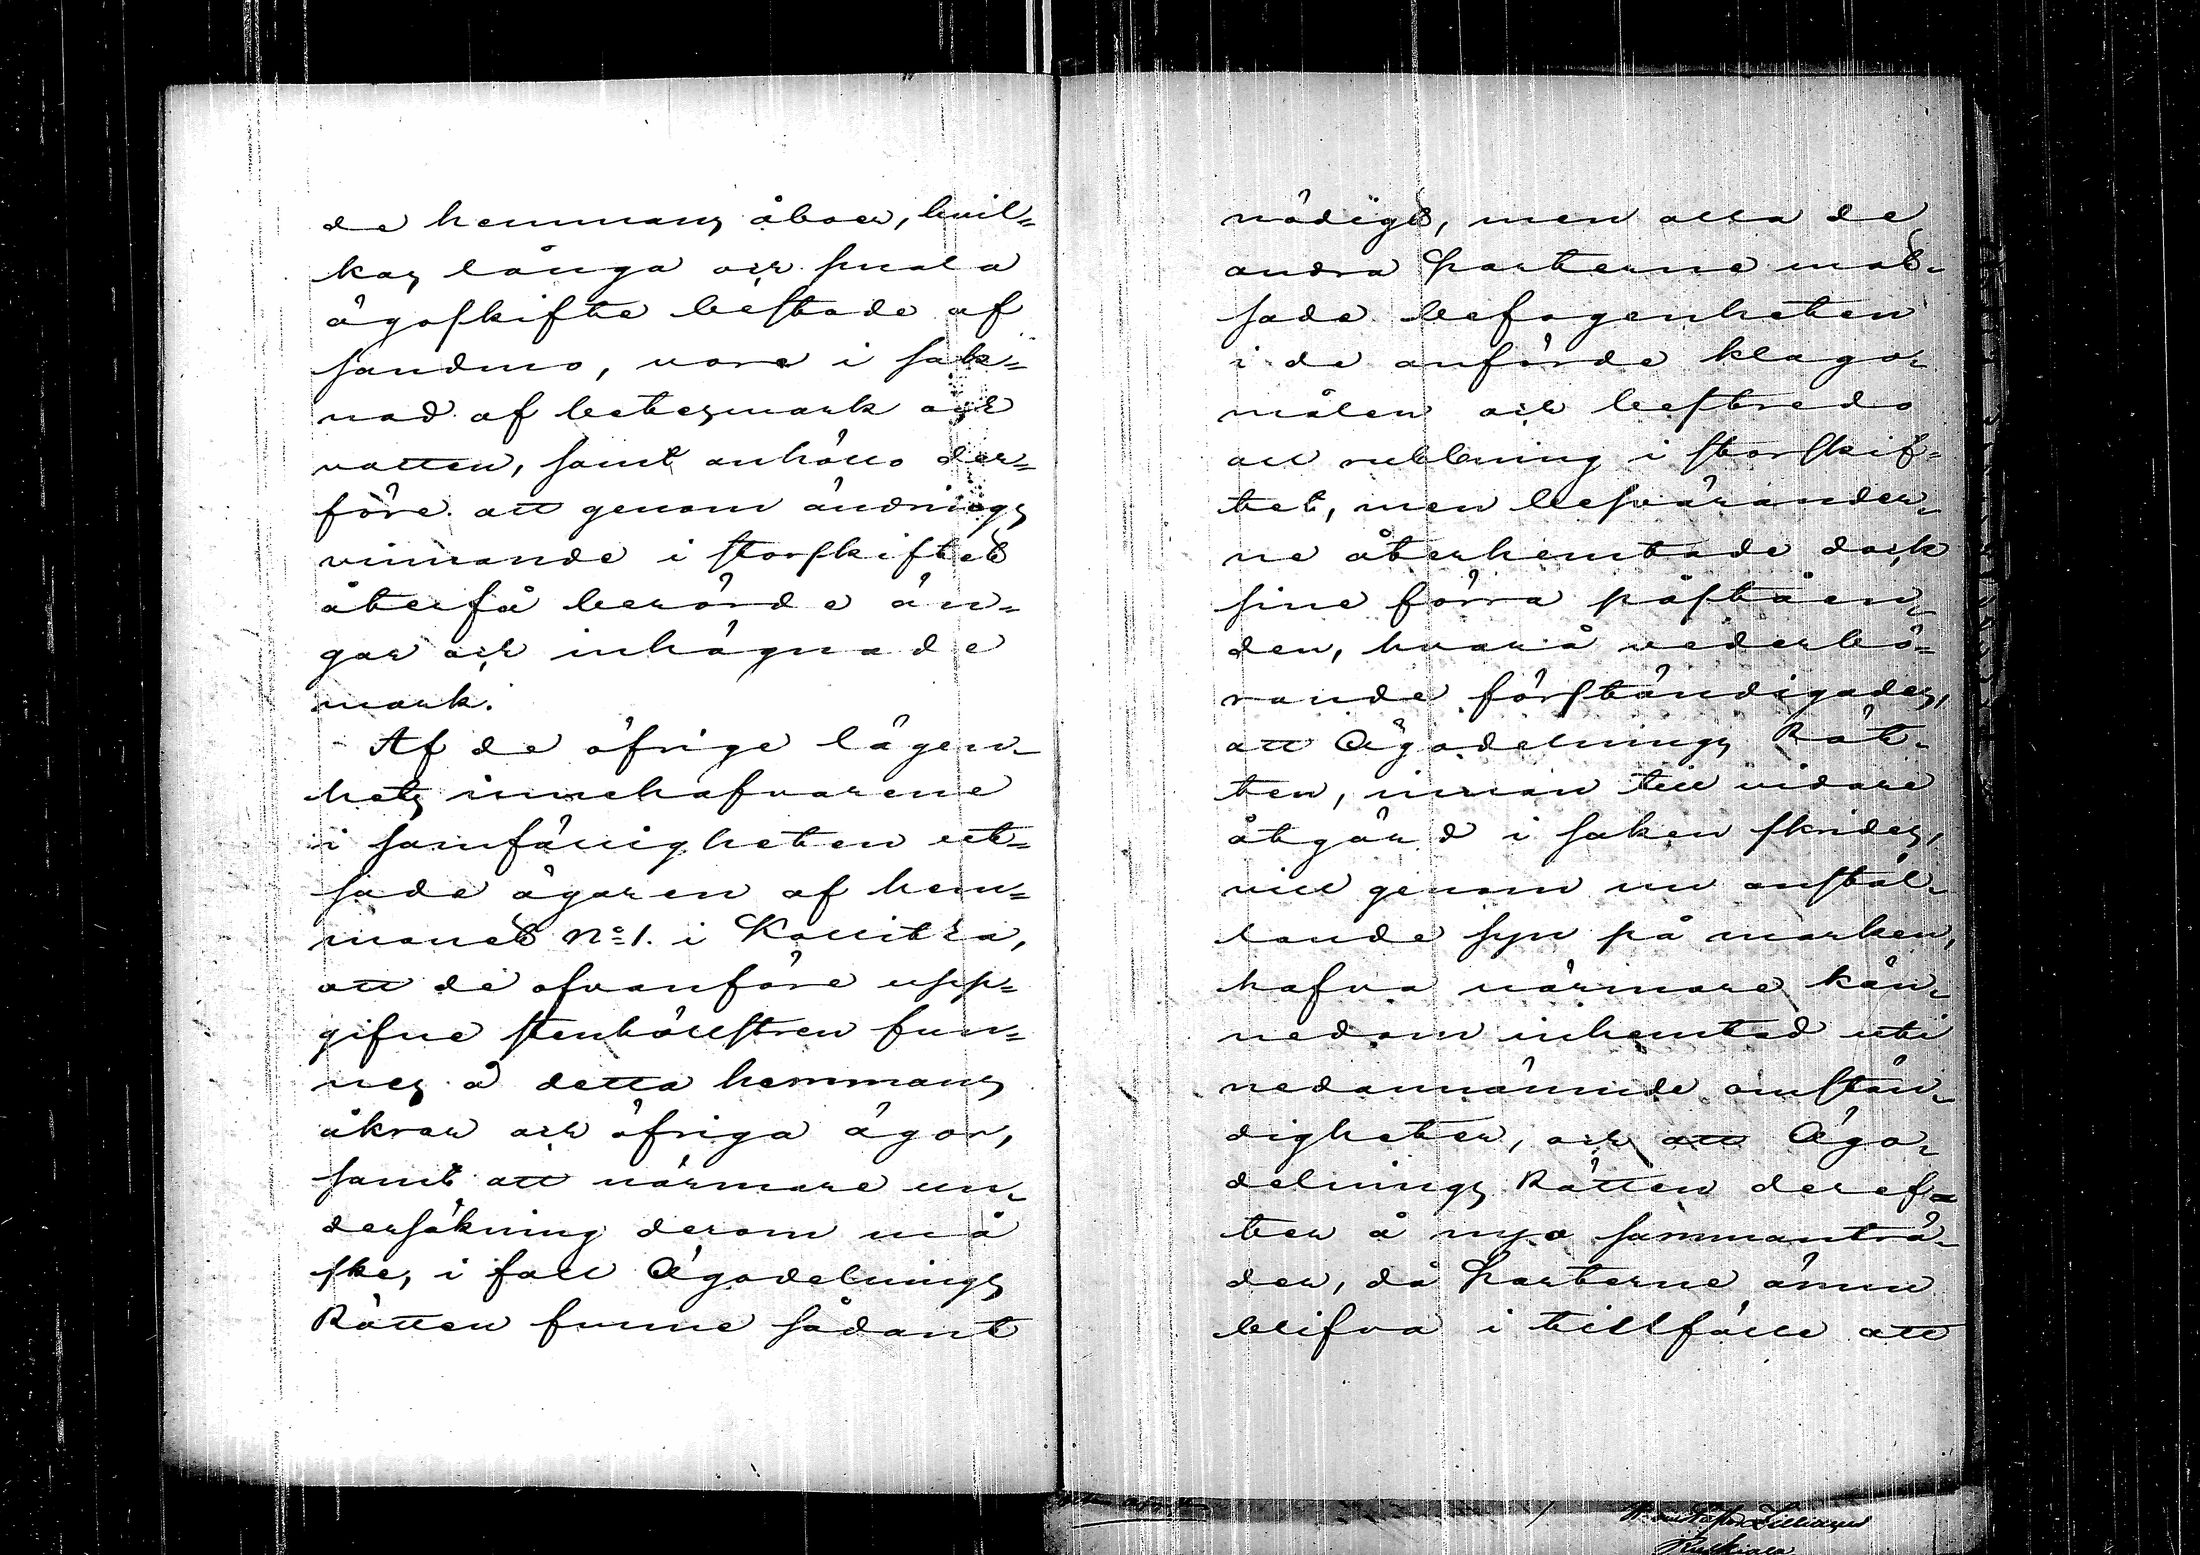 de hemmans åboer, hvil=
kas långa och smala
ägoskifte bestode af
sandmo, vore i sak=
nad af betesmark och
vatten, samt anhöllo der=
före att genom ändrings
vinnande i storskiftet
återfå berörde än=
gar och inhägnade
mark.
Af de öfrige lägen-
hets innehafvarene
i samfälligheten ut=
sade ägaren af hem=
manet No 1. i Kallitza,
att de ofvanföre upp=
gifne stenhällstren fun=
nes å detta hemmans
åkrar och öfriga ägor,
samt att närmare un-
dersökning derom må
ske, i fall Ägodelnings
Rätten funne sådant
nödigt, men alla de
andra parterne mot-
sade befogenheten
i de anförde klago-
målen och bestredo
all rubbning i storskif=
tet, men besvärander-
ne återhemtade dock
sine förra påståen-
den, hvarå vederbö=
rande förständigades,
att Ägodelnings Rät-
ten, innan till vidare
åtgärd i saken skrides,
vill genom nu anstäl-
lande syn på marken,
hafva närmare kän-
nedom inhemtad uti
nedannämnde omstän-
digheter, och att Ägo-
delnings Rätten deref-
ter å nyo sammanträ-
der, då parterne ännu
blifva i tillfälle att